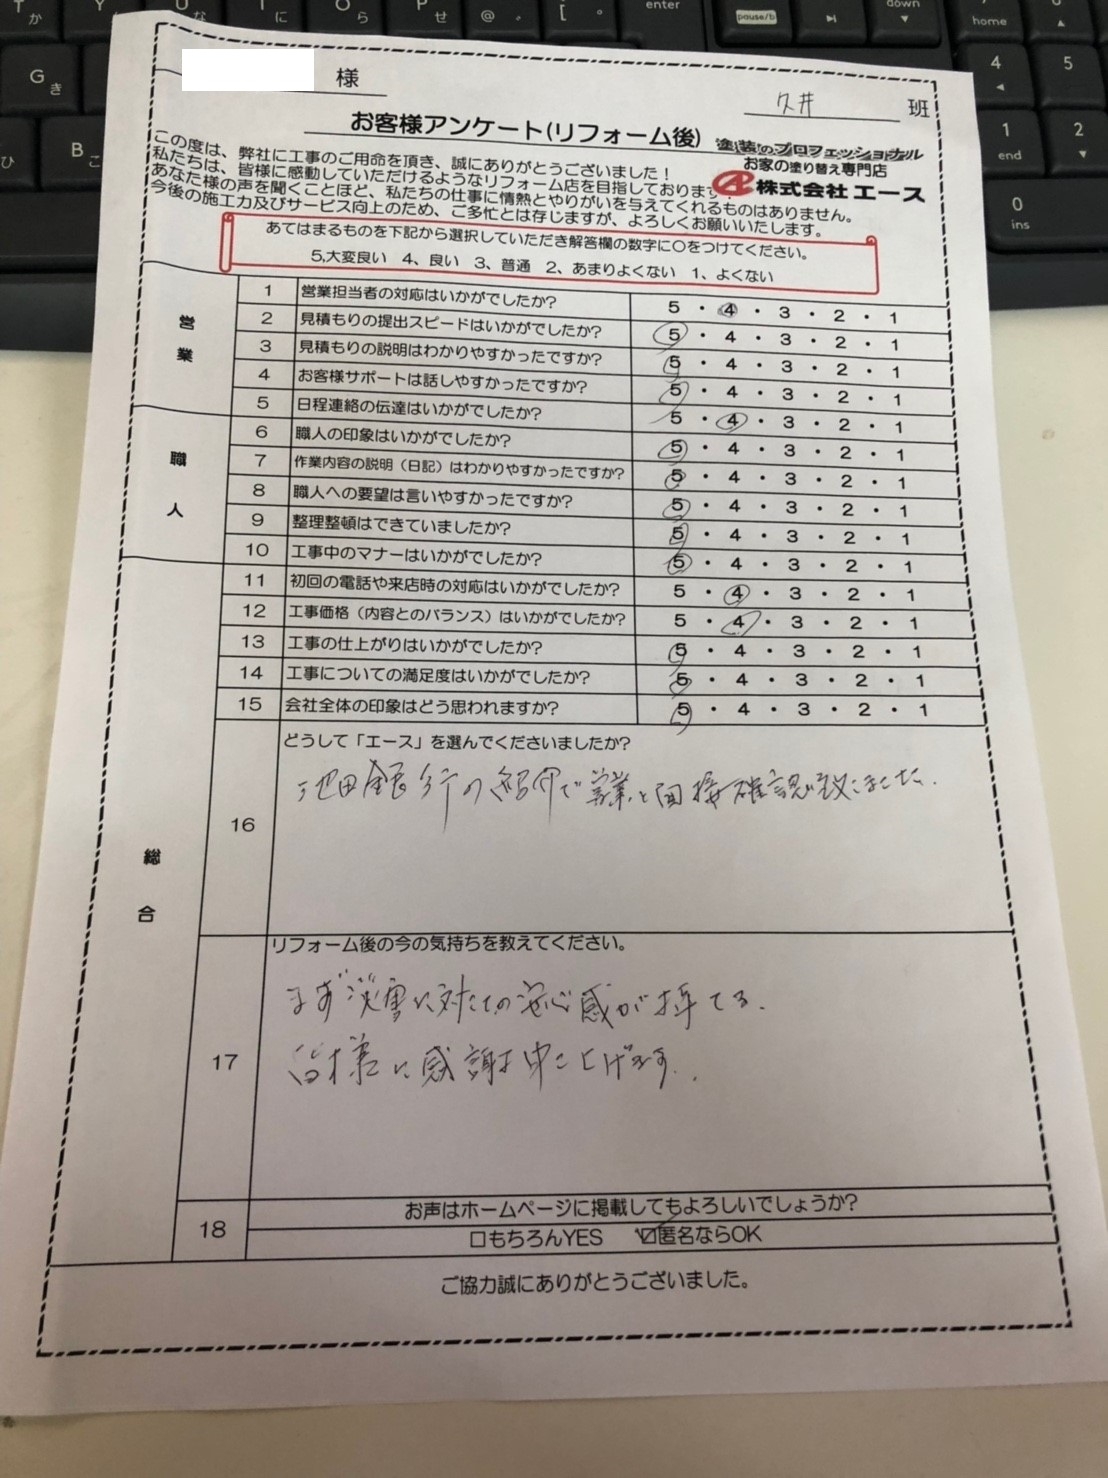 様
久井 班
お客様アンケート(リフォーム後)
塗装のプロフェッショナル
お家の塗り替え専門店
株式会社エース
この度は、弊社に工事のご用命を頂き、誠にありがとうございました！
私たちは、皆様に感動していただけるようなリフォーム店を目指しております
あなた様の声を聞くことほど、私たちの仕事に情熱とやりがいを与えてくれるものはありません。
今後の施工力及びサービス向上のため、ご多忙とは存じますが、よろしくお願いいたします。
あてはまるものを下記から選択していただき解答欄の数字に〇をつけてください。
5,大変良い 4、良い 3、普通 2、あまりよくない 1、よくない
営業
1 営業担当者の対応はいかがでしたか? 5・4・3・2・1
2 見積もりの提出スピードはいかがでしたか? 5・4・3・2・1
3 見積もりの説明はわかりやすかったですか? 5・4・3・2・1
4 お客様サポートは話しやすかったですか? 5・4・3・2・1
5 日程連絡の伝達はいかがでしたか? 5・4・3・2・1
職人
6 職人の印象はいかがでしたか? 5・4・3・2・1
7 作業内容の説明（日記）はわかりやすかったですか? 5・4・3・2・1
8 職人への要望は言いやすかったですか? 5・4・3・2・1
9 整理整頓はできていましたか? 5・4・3・2・1
10 工事中のマナーはいかがでしたか? 5・4・3・2・1
総合
11 初回の電話や来店時の対応はいかがでしたか? 5・4・3・2・1
12 工事価格（内容とのバランス）はいかがでしたか? 5・4・3・2・1
13 工事の仕上がりはいかがでしたか? 5・4・3・2・1
14 工事についての満足度はいかがでしたか? 5・4・3・2・1
15 会社全体の印象はどう思われますか? 5・4・3・2・1
16 どうして「エース」を選んでくださいましたか?
池田銀行の紹介で営業と面接確認致しました.
17 リフォーム後の今の気持ちを教えてください。
まず災害に対しての安心感が持てる.
皆様に感謝申し上げます.
18 お声はホームページに掲載してもよろしいでしょうか?
□もちろんYES ☑匿名ならOK
ご協力誠にありがとうございました。